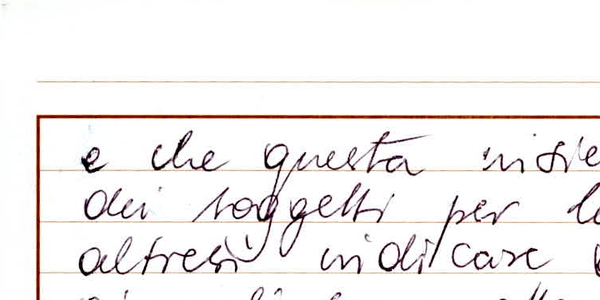 e che questa insie
dei soggetti per l
altresì indicare